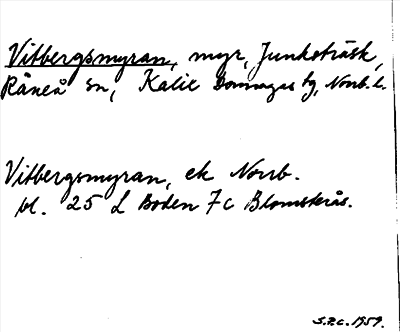 Vitbergsmyran, myr, Junkoträsk,
Råneå sn, Kalix Domsagas tg, Norrb. l.
Vitbergsmyran, ek Norrb.
bl. 25 L Boden 7c Blomsterås.
S.P.C. 1959.